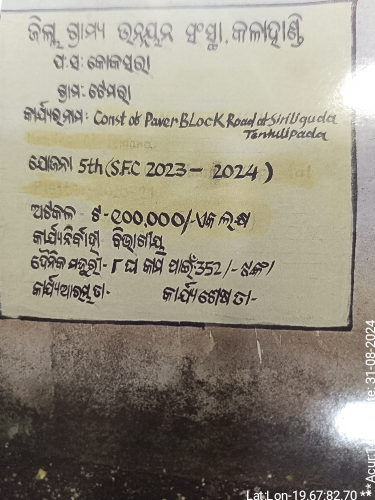 ଜିଲ୍ଲା ଗ୍ରାମ୍ୟ ଉନ୍ନୟନ ସଂସ୍ଥା, କଳାହାଣ୍ଡି
ପ.ସ: କୋକସରା
ଗ୍ରାମ: ଟେମରା
କାର୍ଯ୍ୟରନାମ: Const of Paver BLock Road at Siriliguda
Tentulipada
ଯୋଜନା 5th (SFC 2023 - 2024)
ଅଟକଳ ଟ-୧୦୦,୦୦୦/- ଏକ ଲକ୍ଷ
କାର୍ଯ୍ୟନିର୍ବାହୀ ବିଭାଗୀୟ
ଦୈନିକ ମଜୁରୀ:- ୮ ଘ କାମ ପାଇଁ 352/- ଟଙ୍କା
କାର୍ଯ୍ୟଆରମ୍ଭ ତା- କାର୍ଯ୍ୟଶେଷ ତା-
Lat:Lon-19.67:82.70 **Acur
te: 31-08-2024